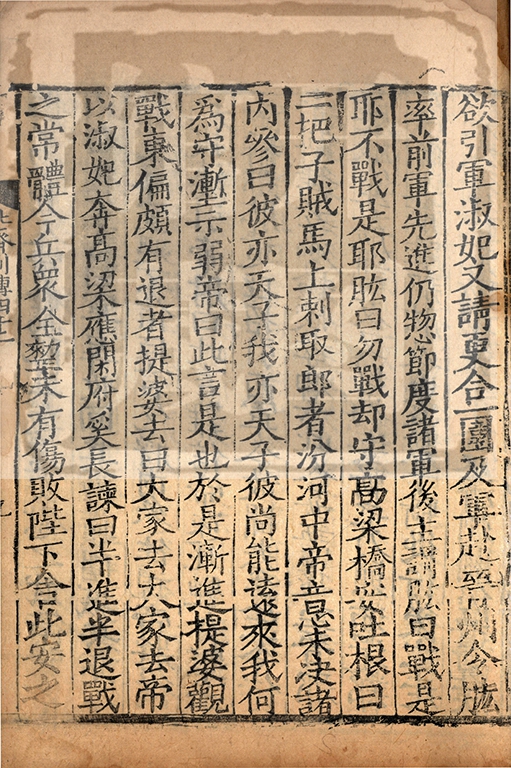 欲引軍淑妃又請更合一圍及軍赴晉州令肱
率前軍先進仍惣節度諸軍後主謂肱曰戰是
耶不戰是耶肱曰勿戰却守高梁橋安吐根曰
一把子賊馬上刺取郎者汾河中帝意未決諸
内參曰彼亦天子我亦天子彼尚能遠來我何
爲守塹示弱帝曰此言是也於是漸進提婆觀
戰東偏頗有退者提婆去曰大家去大家去帝
以淑妃奔高梁應開府奚長諫曰半進半退戰
之常體今兵衆全整未有傷敗陛下舎此安之
北齊列傳四十二